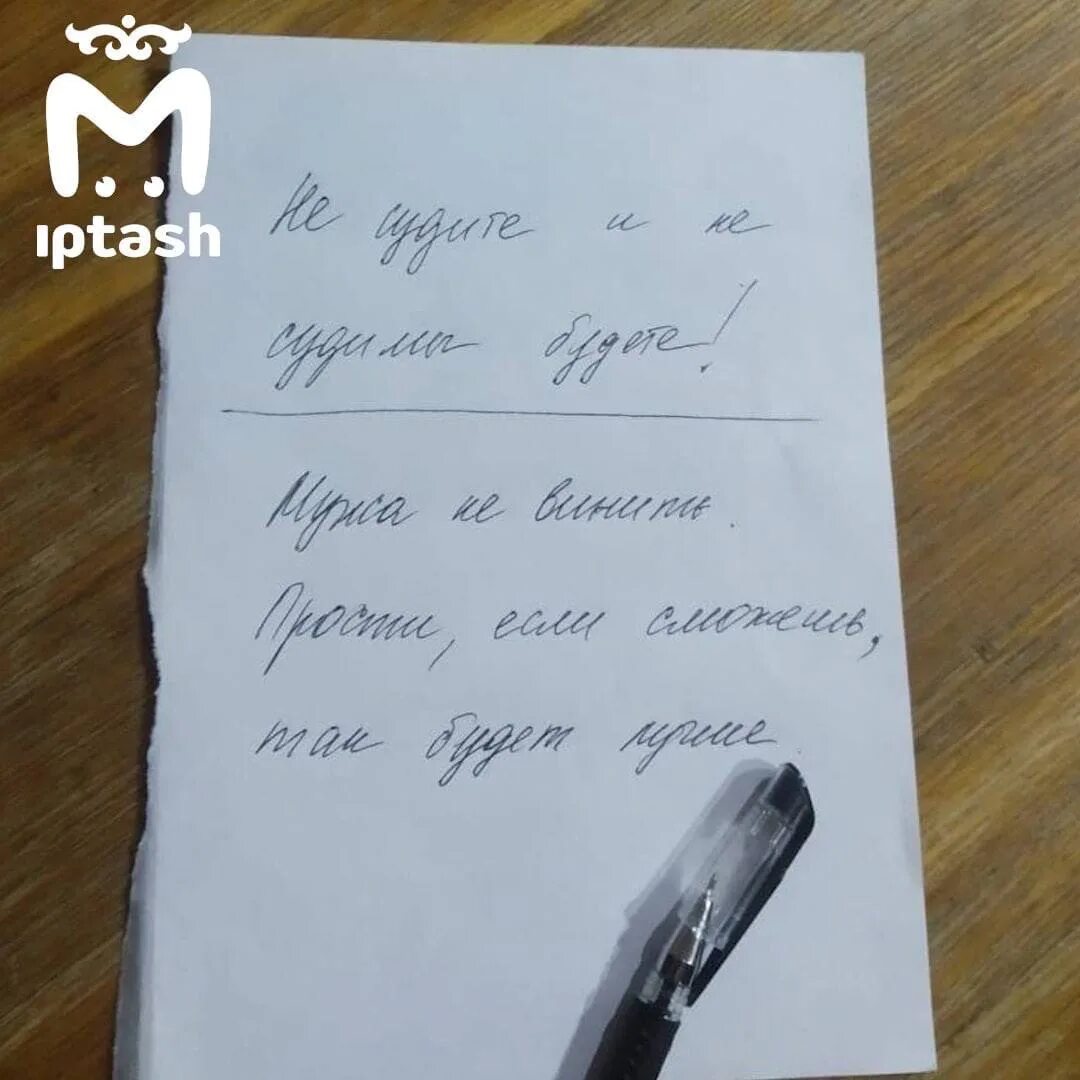 M
ıptash
Не судите и не
судимы будете!
Мужа не винить.
Прости, если сможешь,
так будет лучше.